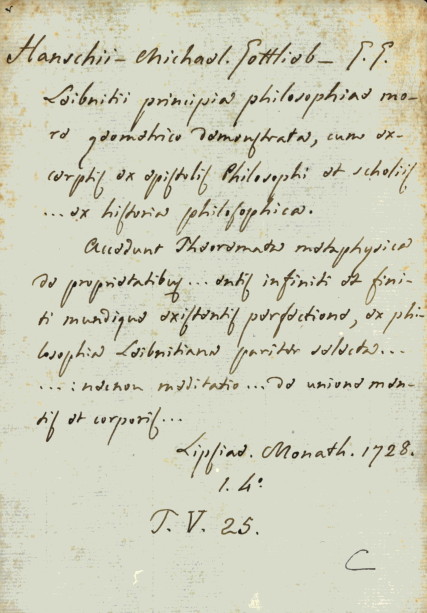 Hanschii – Michael. Gottlieb – G. G.
Leibnitii principia philosophiae mo-
re geometrico demonstrata, cum ex-
cerptis ex epistolis Philosophi et scholiis
... ex historia philosophica.
Accedunt Theoremata metaphysica
de proprietatibus ... entis infiniti et fini-
ti mundique existentis perfectione, ex phi-
losophia Leibnitiana pariter selecta ...
... : necnon meditatio ... de unione men-
tis et corporis ...
Lipsiae. Monath. 1728.
1. 4°
T. V. 25.
C